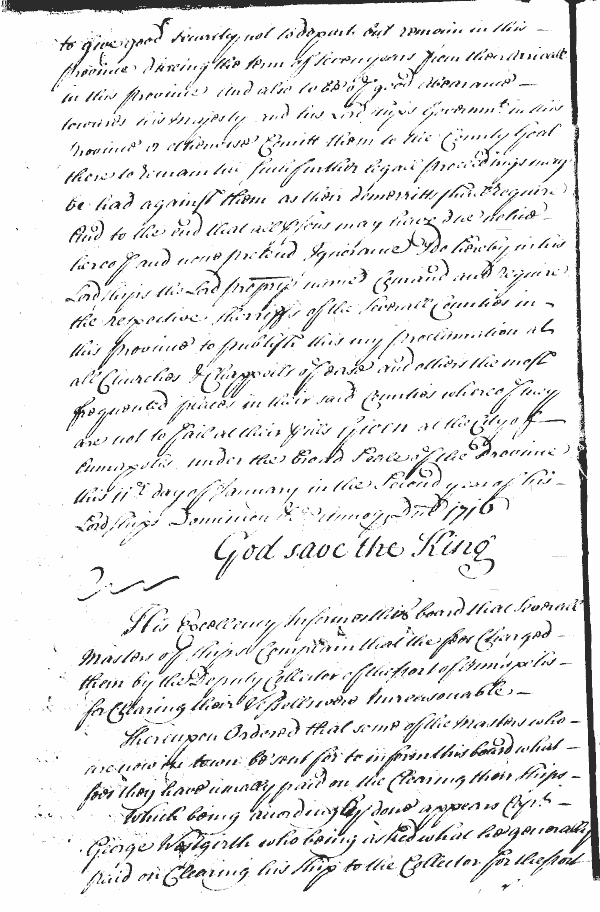 to give good Security not to depart but remain in this
Province dureing the term of seven years from their arrivall
in this Province and also to be of good abearance
towards his Majesty and his Lordships Governmt. in this
Province or otherwise Comitt them to the County Goal
there to remain till such further legall proceedings may
be had against them as their demerritts shall require
And to the end that all psons may have due notice
hereof and none pretend Ignorance I do hereby in his
Lordships the Lord Proprys name Comand and require
the respective Sherriffs of the Severall Counties in
this Province to publish this my Proclamation at
all Churches & Chappells of ease and others the most
frequented places in their said Counties whereof they
are not to fail at their perills Given at the City of
Annapolis under the broad Seale of the Province
this 11th day of January in the Second year of his
Lordships Dominion &c Annoq Dni 1716
God save the King
His Excellency Informes this board that Severall
Masters of Ships Complain that the fees Charged
them by the Deputy Collector of the port of Annapolis
for Clearing their Vessells were Unreasonable
Thereupon Ordered that some of the Masters who
are now in town be sent for to inform this board what
fees they have usually paid on the Clearing their Ships
Which being accordingly done appears Capt.
George Westgarth who being asked what he generally
paid on Clearing his Ship to the Collector for the port